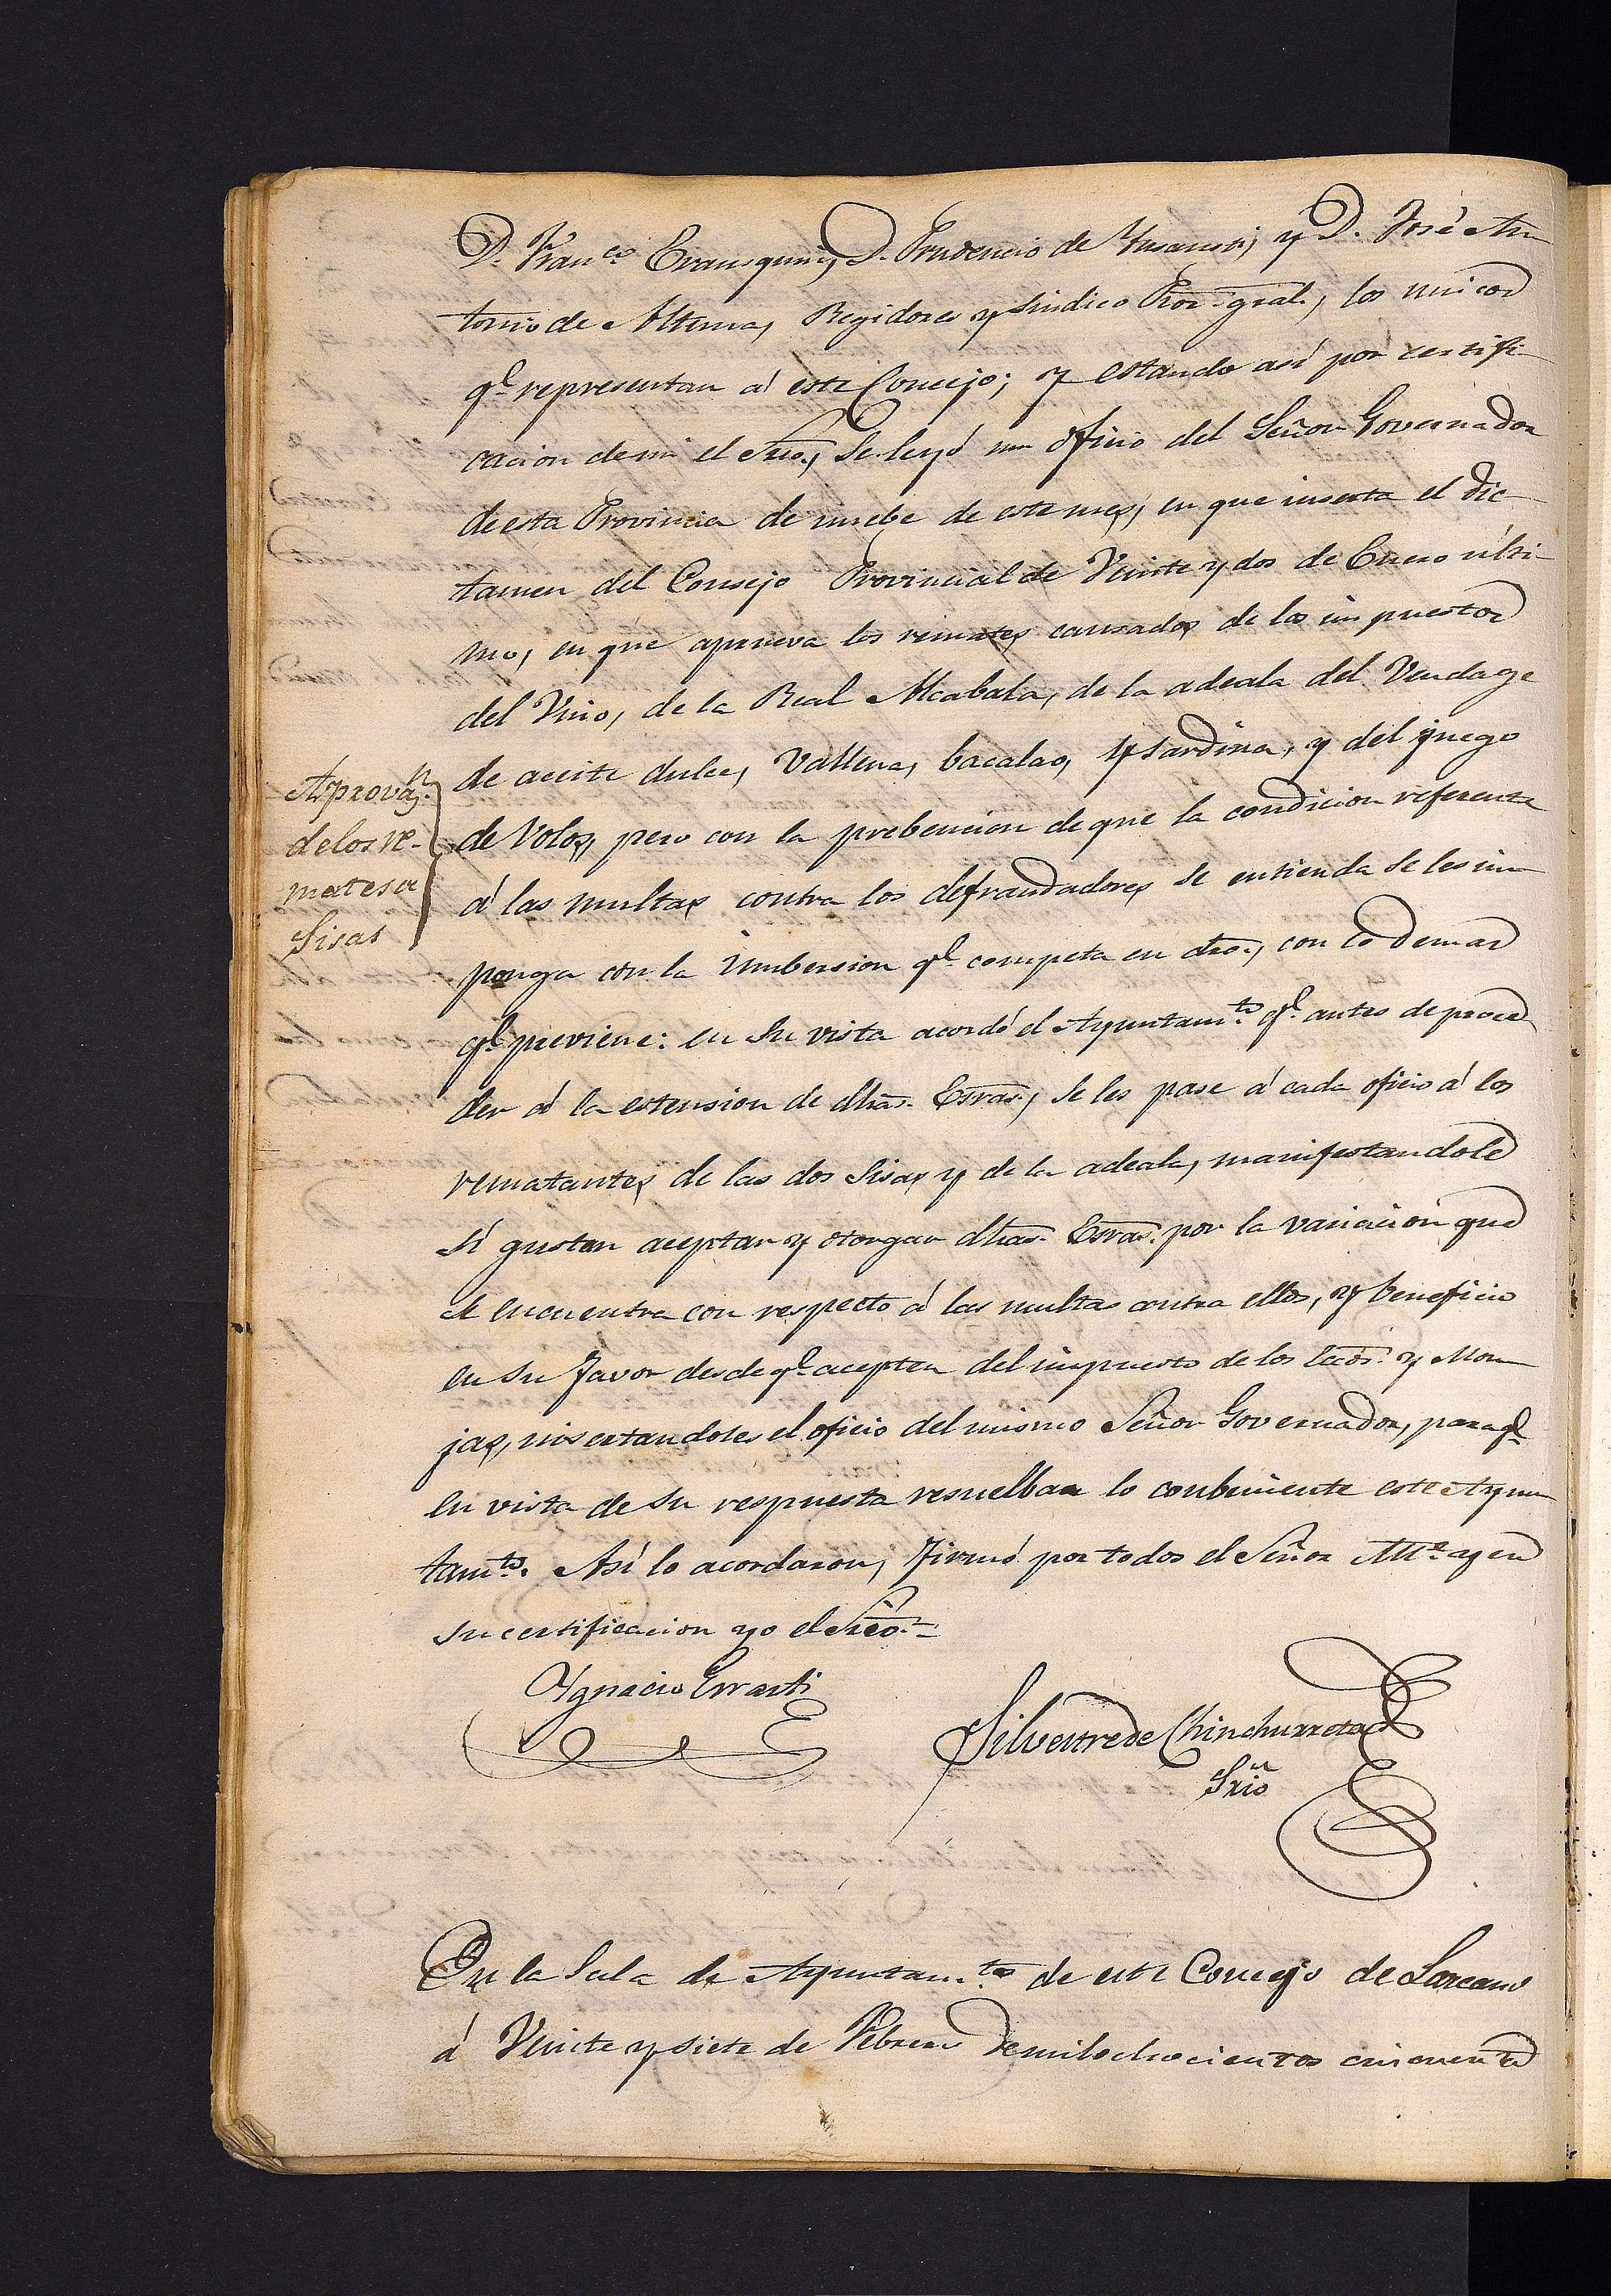 D. Fran.co Erausquin, D. Prudencio de Ynsausti, y D. José An
tonio de Altuna, Regidores y Sindico Pror gral., los unicos
q.e representan á este Concejo; y estando asi por certifi
cacion de mi el Srio., se leyó un oficio del Señor Governador
de esta Provincia de nuebe de este mes, en que inserta el dic-
tamen del Consejo Provincial de Veinte y dos de Enero ulti-
mo, en que aprueva los remates causados de los impuestos
del Vino, de la Real Alcabala, de la adeala del Vendage
de aceite dulce, Vallena, bacalao, y sardina, y del juego
Aprovan.
de los re-
mates a
Sisas
de Volos, pero con la prebencion de que la condicion referente
á las multas contra los defraudadores se entienda se les im
ponga con la imbersion q.e competa en dro., con lo demas
q.e previene: en su vista acordó el Ayuntam.to q.e antes de proce
der á la estension de dhas. Esras., se les pase á cada oficio á los
rematantes de las dos Sisas y de la adeala, manifestandole
si gustan aceptar y otorgar dhas. Esras. por la variacion que
se encuentra con respecto á las multas contra ellos, y beneficio
en su favor desde q.e acepten del impuesto de los Eccos. y Mon
jas, insertandoles el oficio del mismo Señor Governador, para q.e
en vista de su respuesta resuelbaa lo conbeniente este Ayun
tam.to. Asi lo acordaron, firmó por todos el Señor All.e y en
su certificacion yo el Srio.=
Ygnacio Errasti
Silvestre de Chinchurreta
Srio
En la Sala de Ayuntam.to de este Concejo de Lazcano
á Veinte y siete de Febrero de mil ochocientos cincuenta